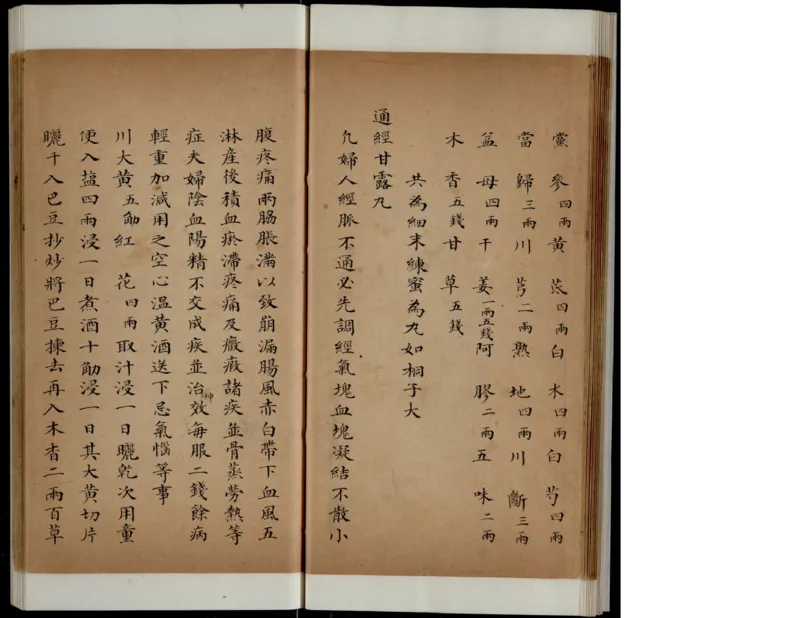 黨參四兩黃芪四兩白木四兩白芍四兩
當歸三兩川芎二兩熟地四兩川斷三兩
益母四兩干姜一兩五錢阿膠二兩五味二兩
木香五錢甘草五錢
共為細末練蜜為丸如桐子大
通經甘露丸
凡婦人經脈不通必先調經氣塊血塊凝結不散小
腹疼痛兩脇脹滿以致崩漏腸風赤白帶下血風五
淋產後積血瘀滯疼痛及癥瘕諸疾並骨蒸勞熱等
症夫婦陰血陽精不交成疾並治神效每服二錢餘病
輕重加減用之空心溫黃酒送下忌氣惱等事
川大黃五觔紅花四兩取汁浸一日曬乾次用童
便入鹽四兩浸一日煮酒十觔浸一日其大黃切片
曬干入巴豆抄炒將巴豆揀去再入木香二兩百草